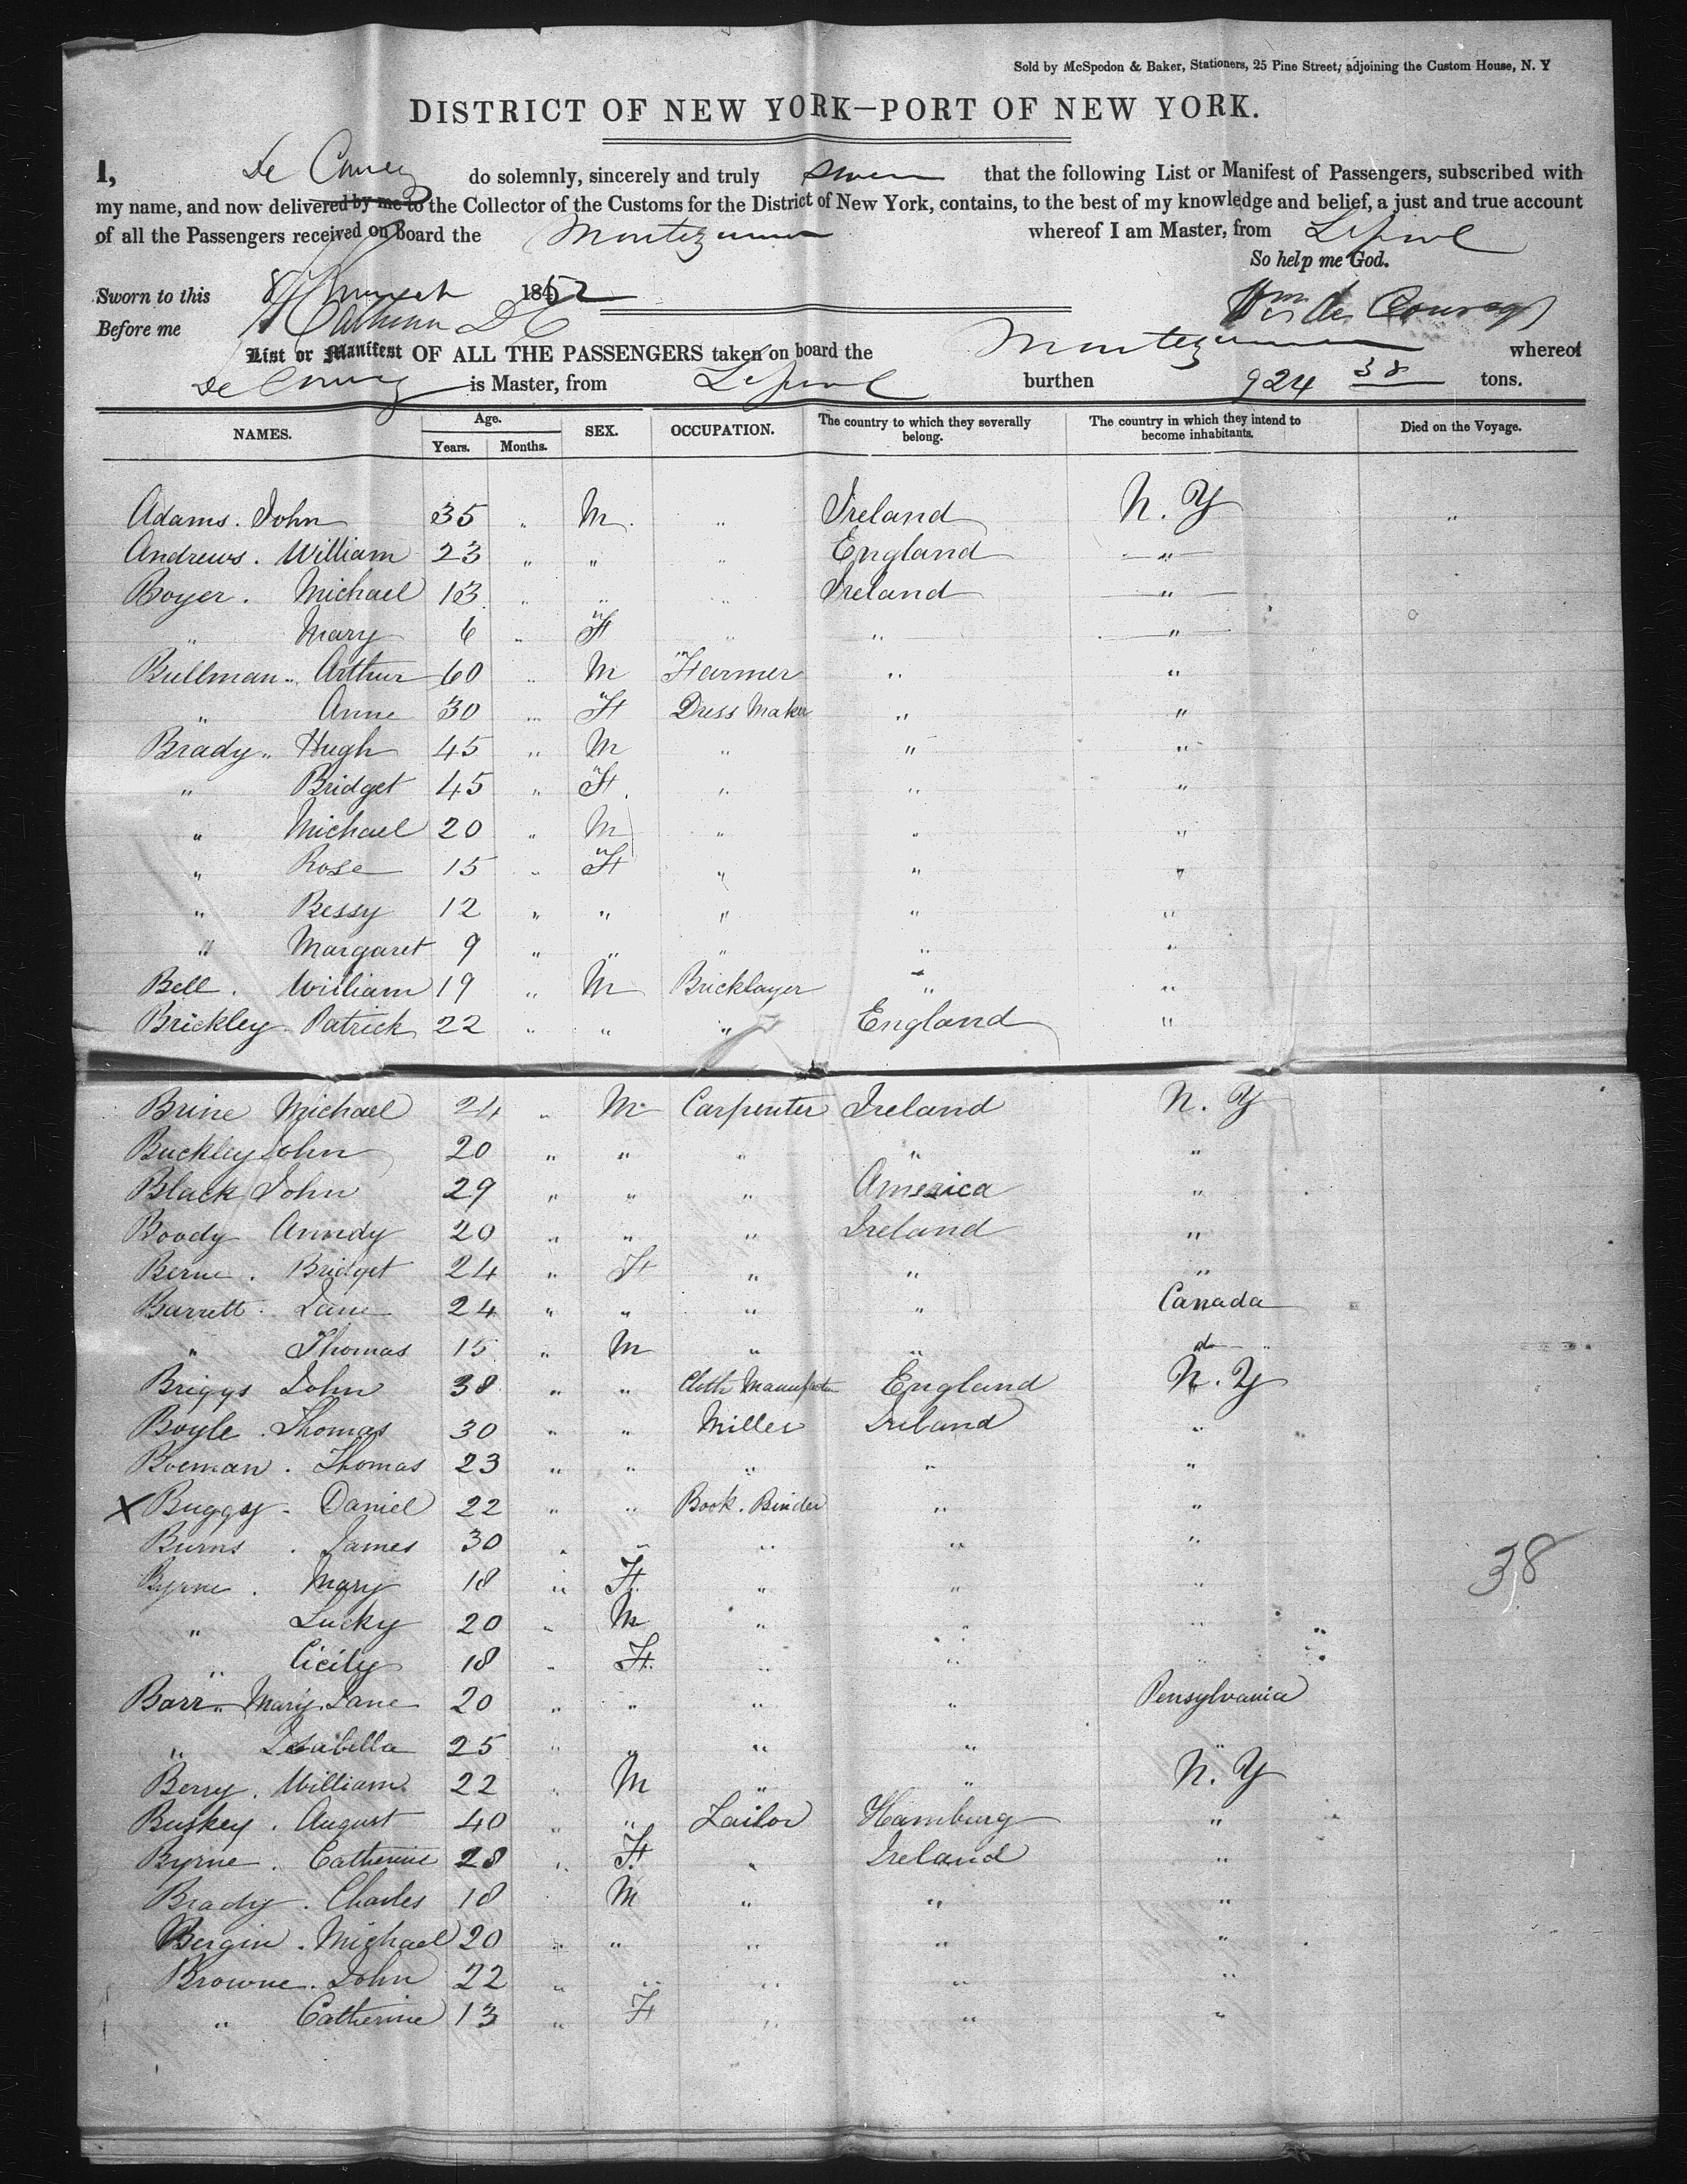 Sold by McSpedon & Baker, Stationers, 25 Pine Street, adjoining the Custom House, N. Y
DISTRICT OF NEW YORK—PORT OF NEW YORK.
I, De Courcy do solemnly, sincerely and truly swear that the following List or Manifest of Passengers, subscribed with
my name, and now delivered by me to the Collector of the Customs for the District of New York, contains, to the best of my knowledge and belief, a just and true account
of all the Passengers received on board the Montezuma whereof I am Master, from Lpool
So help me God.
Sworn to this 8th March 1852
Before me Calhoun D C Wm de Courcy
List or Manifest OF ALL THE PASSENGERS taken on board the Montezuma whereof
De Courcy is Master, from Lpool burthen 924 38 tons.
NAMES. Age. Years. Months. SEX. OCCUPATION. The country to which they severally belong. The country in which they intend to become inhabitants. Died on the Voyage.
Adams. John 35 " M. " Ireland N. Y "
Andrews. William 23 " " " England "
Boyer. Michael 13 " " " Ireland "
" Mary 6 " F " " "
Bullman " Arthur 60 " M Farmer " "
" Anne 30 " F Dress Maker " "
Brady " Hugh 45 " M " " "
" Bridget 45 " F. " " "
" Michael 20 " M " " "
" Rose 15 " F " " "
" Bessy 12 " " " " "
" Margaret 9 " " " " "
Bell. William 19 " M Bricklayer " "
Brickley. Patrick 22 " " " England "
Brine Michael 24 " M Carpenter Ireland N. Y
Buckley John 20 " " " " "
Black John 29 " " " America "
Boody Anndy 20 " " " Ireland "
Berne. Bridget 24 " F " " "
Barrett. Jane 24 " " " " Canada
" Thomas 15 " M " " do "
Briggs John 38 " " Cloth Manufactr England N. Y
Boyle. Thomas 30 " " Miller Ireland "
Boeman. Thomas 23 " " " " "
X Buggy. Daniel 22 " " Book. Binder " "
Burns. James 30 " " " " "
Byrne. Mary 18 " F. " " " 38
" Lucky 20 " M " " "
" Cicily 18 " F. " " "
Barr " Mary Jane 20 " " " " Pensylvania
" Isabella 25 " " " " "
Berry. William 22 " M " " N. Y
Buskey. August 40 " " Tailor Hamburg "
Byrne. Catherine 28 " F. " Ireland "
Brady. Charles 18 M " " "
Bergin. Michael 20 " " " " "
Browne. John 22 " " " " "
" Catherine 13 " F " " "